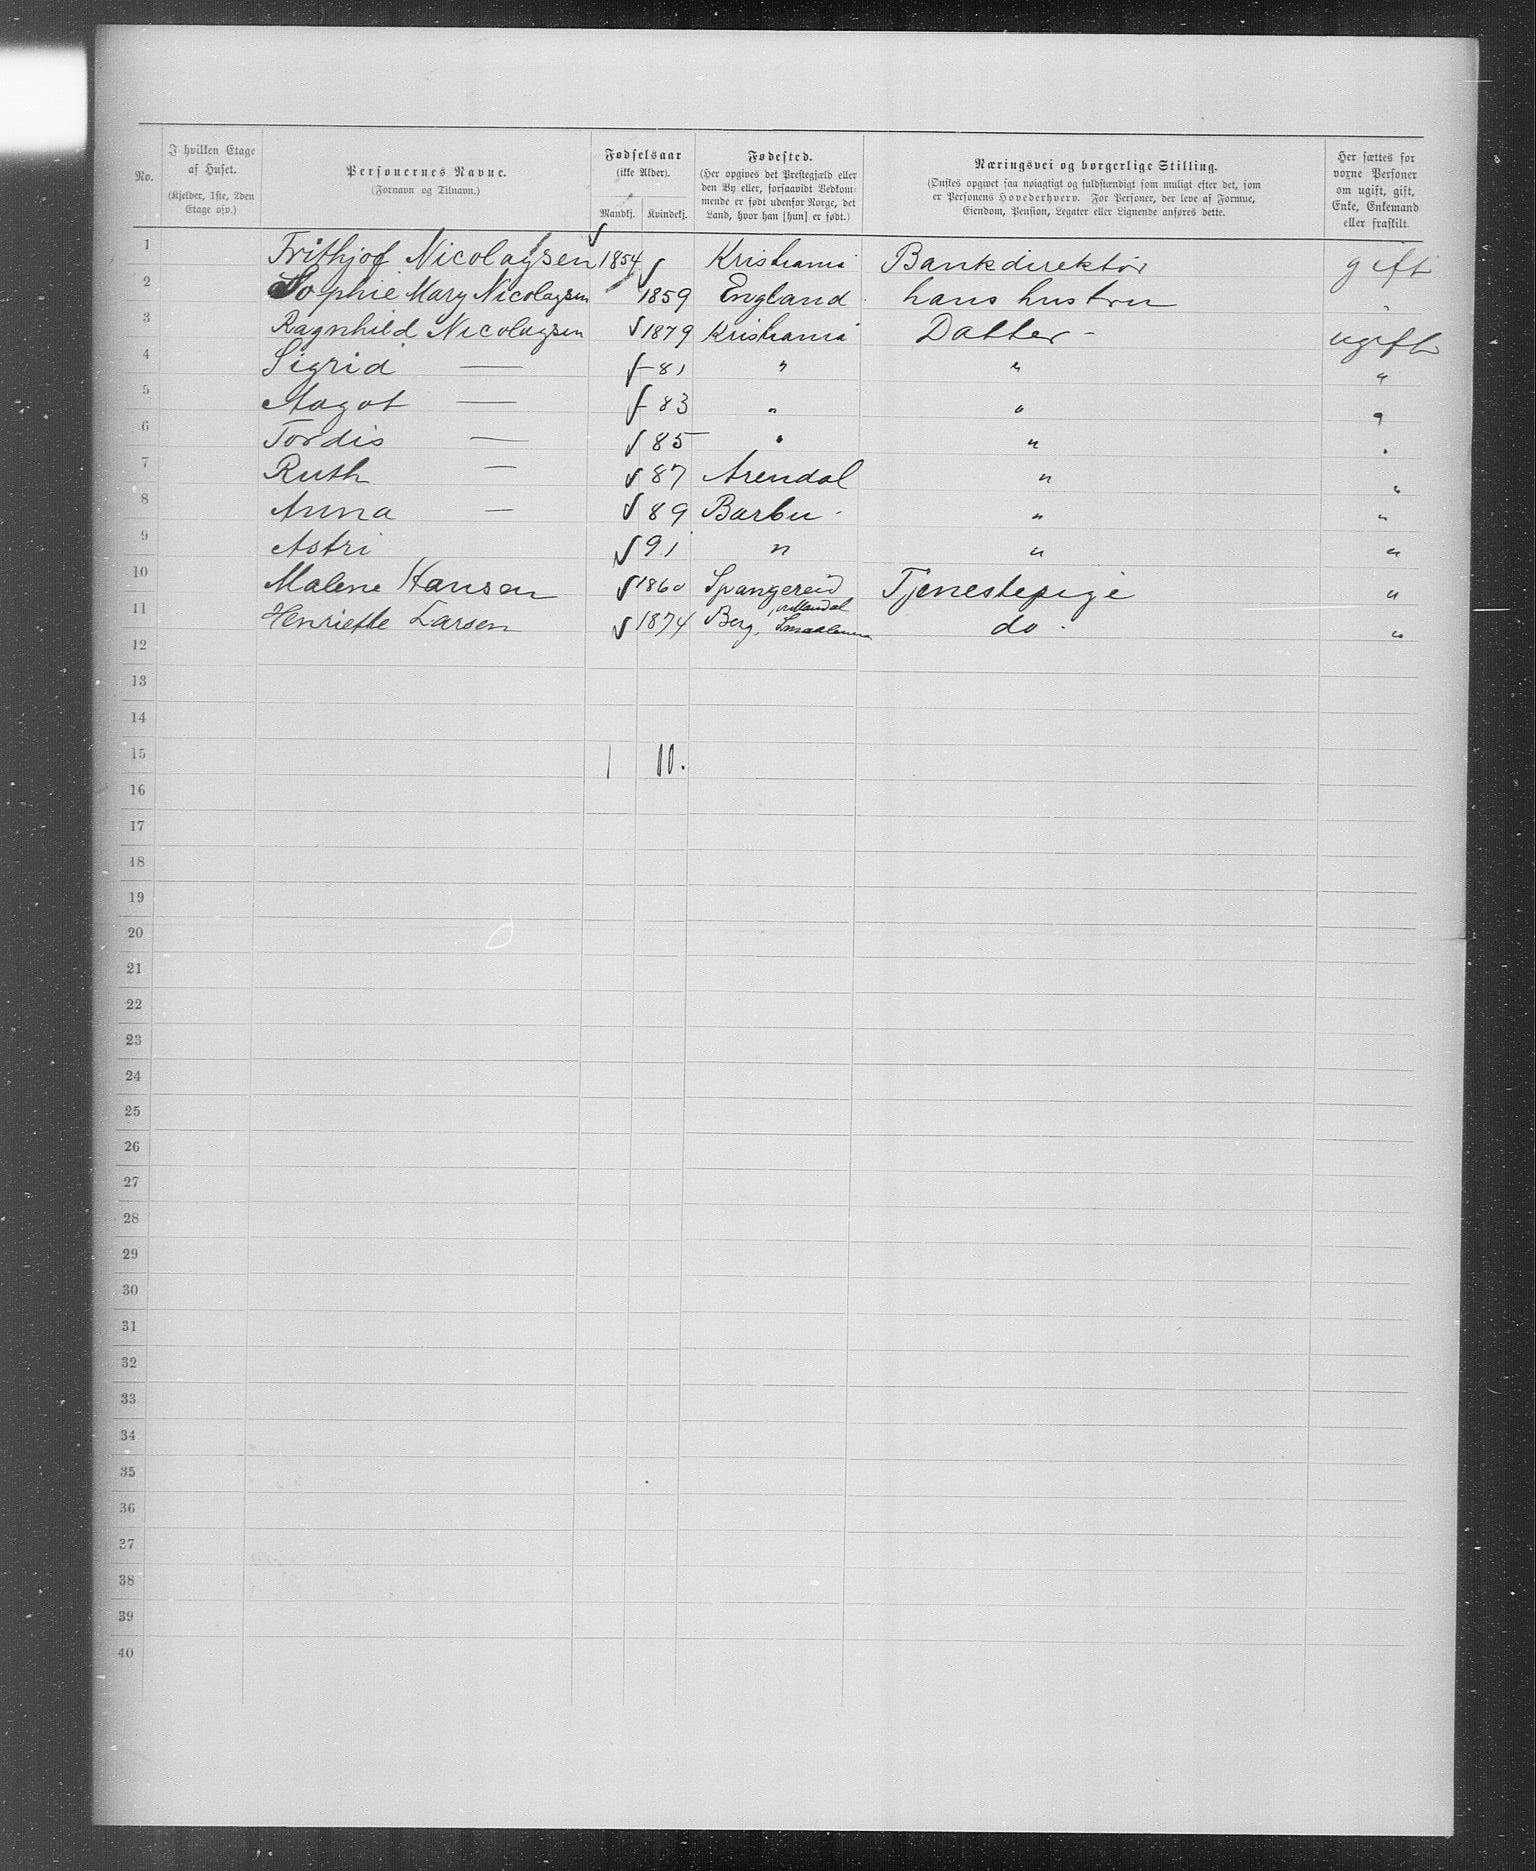 No.
I hvilken Etage
af Huset.
(Kjelder, 1ste, 2den
Etage osv.)
Personernes Navne.
(Fornavn og Tilnavn.)
Fødselsaar
(ikke Alder).
Mandkj. Kvindekj.
Fødested.
(Her opgives det Prestegjæld eller
den By eller, forsaavidt Vedkom-
mende er født udenfor Norge, det
Land, hvor han [hun] er født.)
Næringsvei og borgerlige Stilling.
(Ønskes opgivet saa nøiagtigt og fuldstændigt som muligt efter det, som
er Personens Hovederhverv. For Personer, der leve af Formue,
Eiendom, Pension, Legater eller Lignende anføres dette.
Her sættes for
voxne Personer
om ugift, gift,
Enke, Enkemand
eller fraskilt.
1 Frithjof Nicolaysen 1854 Kristiania Bankdirektør gift
2 Sophie Mary Nicolaysen 1859 England hans hustru "
3 Ragnhild Nicolaysen 1879 Kristiania Datter - ugift
4 Sigrid — - 81 " " "
5 Aagot — - 83 " " "
6 Tordis — 85 " " "
7 Ruth — 87 Arendal " "
8 Anna — 89 Barbu " "
9 Astri 91 " " "
10 Malene Hansen 1860 Spangereid v. Mandal Tjenestepige "
11 Henriette Larsen 1874 Berg, Smaalenene do "
12
13
14
15 1 11.
16
17
18
19
20
21
22
23
24
25
26
27
28
29
30
31
32
33
34
35
36
37
38
39
40